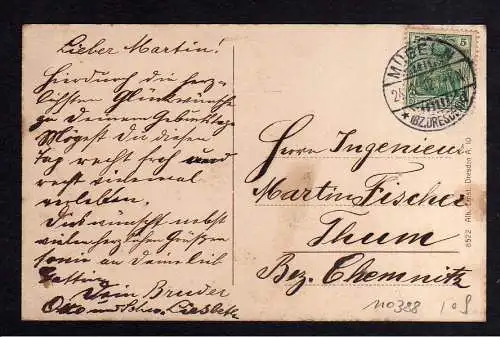 Lieber Martin!
Hierdurch die herz-
lichsten Glückwünsche
zu Deinem Geburtstage
Mögest Du diesen
Tag recht froh und
recht einmal
verleben.
Dies wünscht nebst
herzlichen Grüssen
an Deine lieb
Gattin
Dein Bruder
Otto und Schw. Liesbeth
5
MÜGELN
(BZ. DRESDEN)
Herrn Ingenieur
Martin Fischer
Thum
Bez. Chemnitz
6522 Alb. Ernst, Dresden A. 10
110388